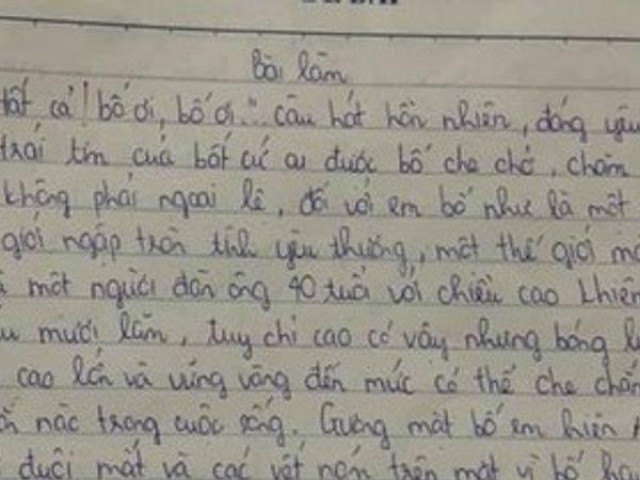 Bài làm
tất cả! bố ơi, bố ơi." câu hát hồn nhiên, đáng yêu
trái tim của bất cứ ai được bố che chở, chăm
không phải ngoại lệ, đối với em bố như là một
giới ngập tràn tình yêu thương, một thế giới mà
một người đàn ông 40 tuổi với chiều cao khiêm
mươi lăm, tuy chỉ cao có vậy nhưng bóng
cao lớn và vững vàng đến mức có thể che chắn
nấc trong cuộc sống. Gương mặt bố em hiện
đuôi mắt và các vết nám trên mặt vì bố hay